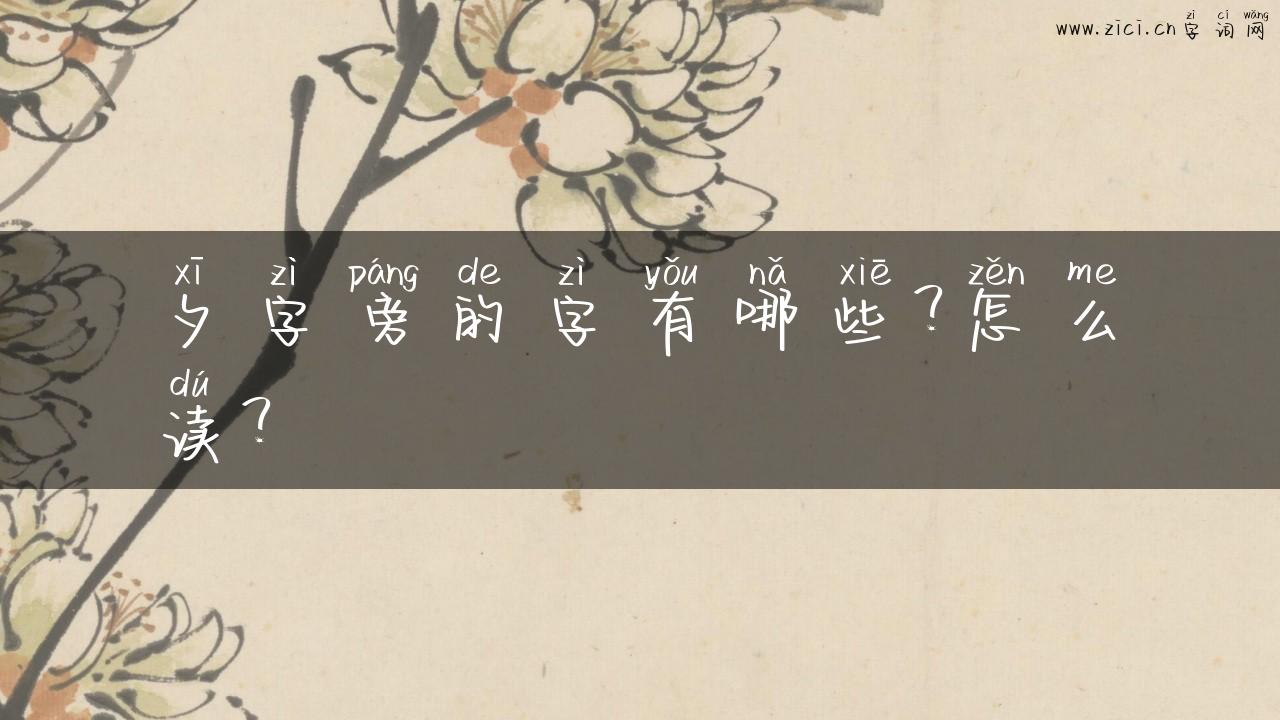 www.zici.cn字词网
zì cí wǎng
xī zì páng de zì yǒu nǎ xiē zěn me
夕字旁的字有哪些？怎么
dú
读？